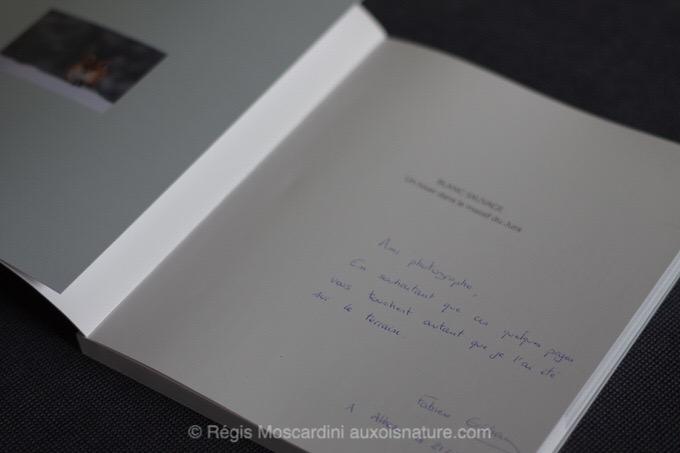 BLANC SAUVAGE
Un hiver dans le massif du Jura
Ami photographe,
En souhaitant que ces quelques pages
vous touchent autant que je l'ai été
sur le terrain.
Fabien
A
© Régis Moscardini auxoisnature.com